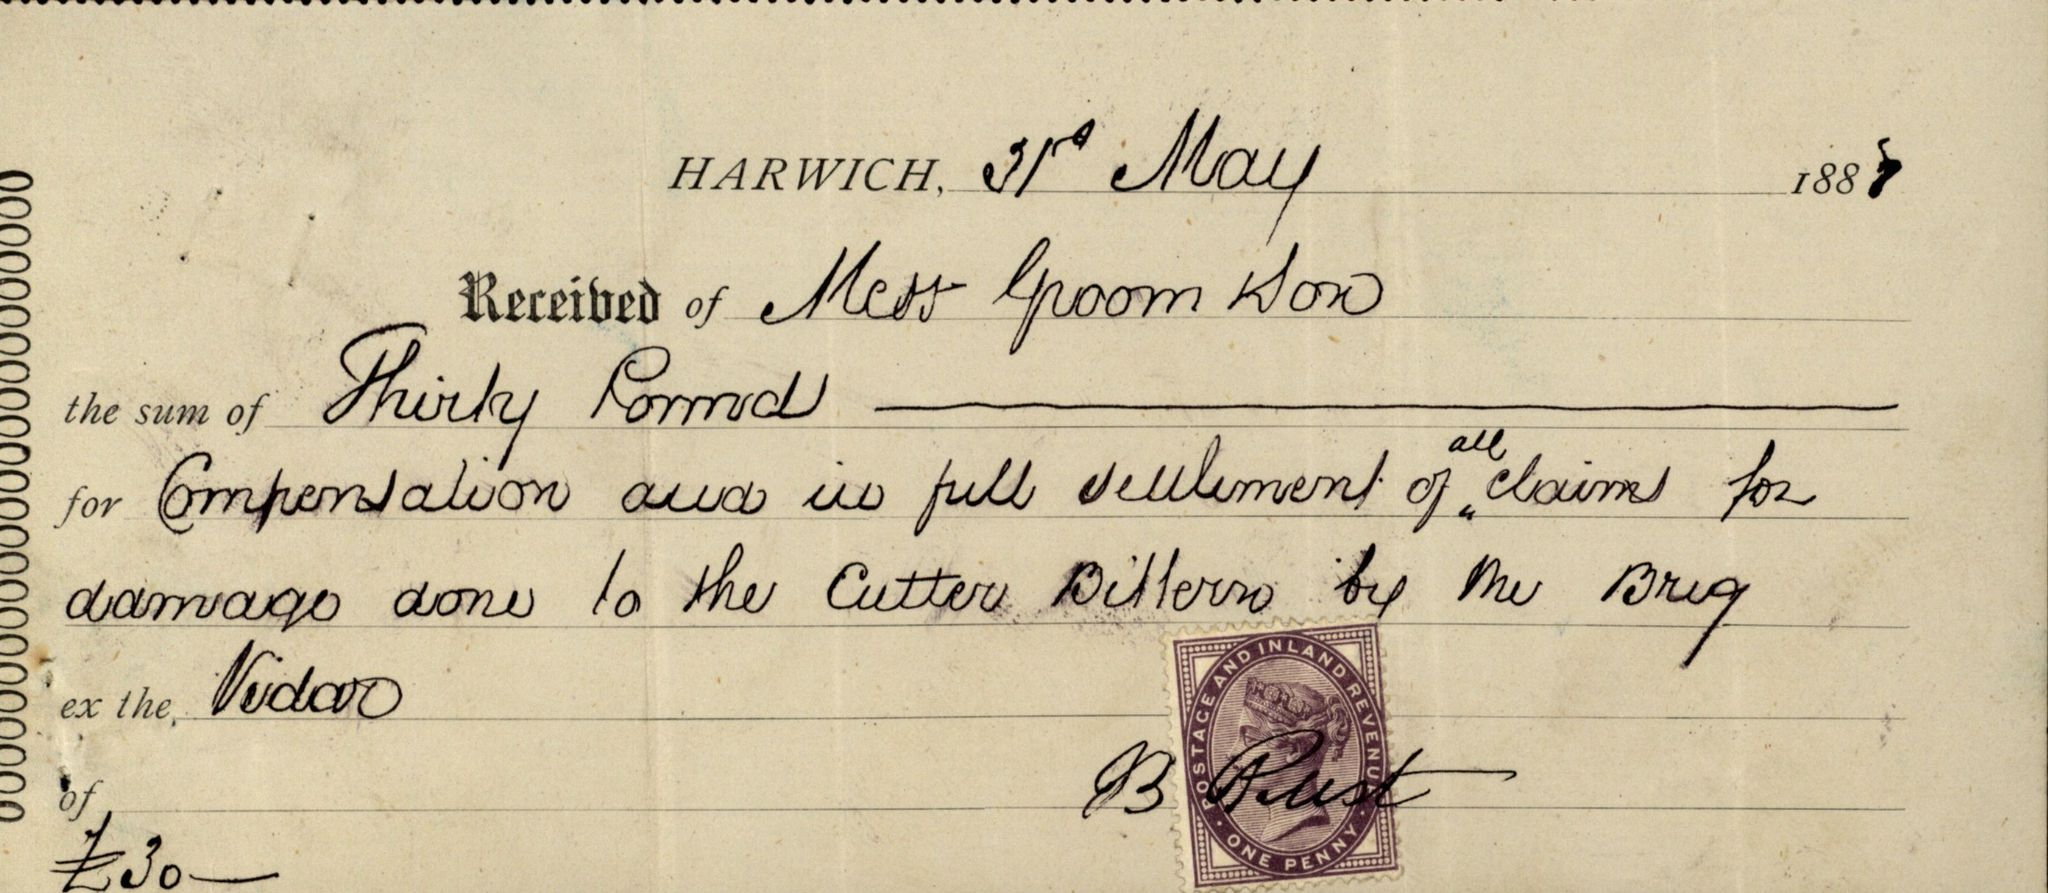 HARWICH, 31rd May 188
Received of Mess Groom Son
the sum of Thirty Pound
all
for Compensation and in full settlement of „ claims for
damage done to the Cutter Bittern by the Brig
ex the, Vidar
POSTAGE AND INLAND REVENUE
B Rust
of
ONE PENNY
£30—